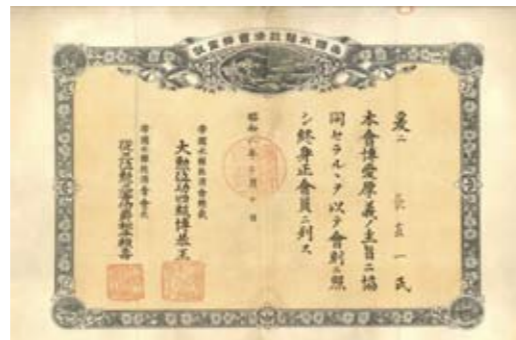 爰ニ 左一氏
本會博愛厚義ノ主旨ニ協
同セラルヽヲ以テ會則ニ照
シ終身正會員ニ列ス
昭和六年 月十日
帝國水難救濟會總裁
大勲位功四級博恭王
帝國水難救濟會會長
從二位勲 等伯爵松平頼壽